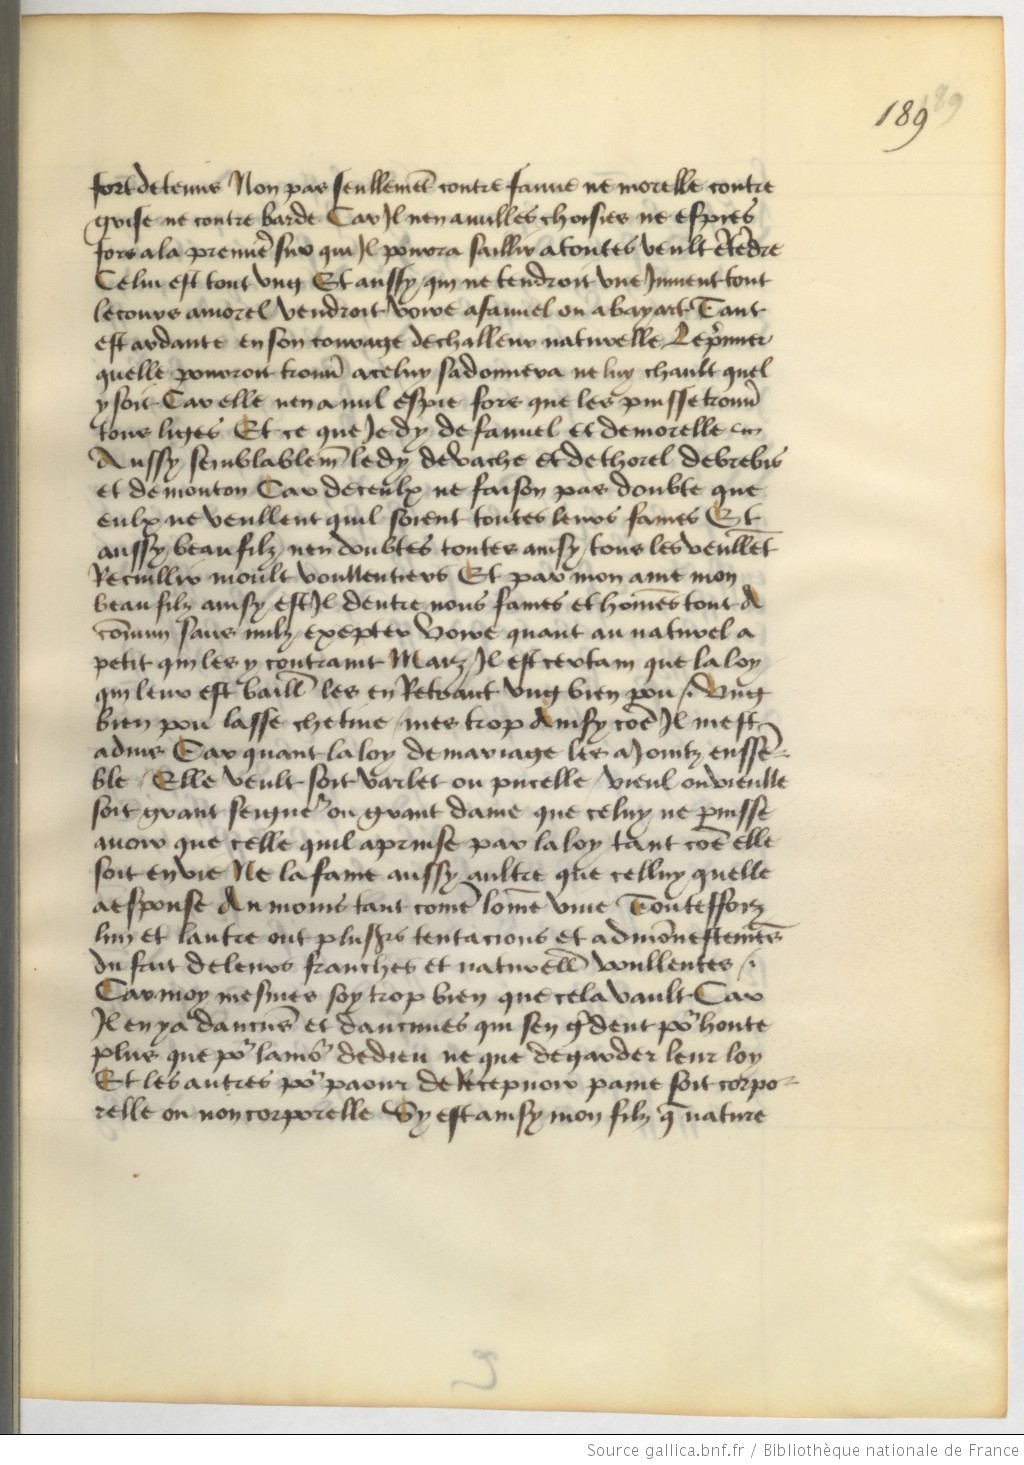 189
189
fort detenus Non pas seullemēt contre fauue ne morelle contre
grise ne contre barde Car Il nen a nulles choisies ne espies
fors a la premiēr sur qui Il pourra saillir a toutes veult
Celui est tout vng Et aussy qui ne tendroit vne Iument tout
le cours a morel vendroit voire a fauuel ou a bayart Tant
est ardante en son courage de challeur naturelle Le p̄mier
quelle pourroit trouū a celuy sadonnera ne luy chault quel
y soit Car elle nen a nul espie fors que les puisse trouū
tous liges Et ce que Ie dy de fauuel et de morelle
Aussy semblablem̄ le dy de vache et de thorel de brebis
et de mouton Car de ceulx ne faison pas doubte que
eulx ne veullent quil soient toutes leurs fames Et
aussy beau filz nen doubtes toutes ainsy tous les veullēt
Recuillir moult voullentiers Et par mon ame mon
beau filz ainsy est Il dentre nous fames et hōmes tout A
cōmun sans nulz exepter voire quant au naturel a
petit qui les y contraint Maiz Il est certain que la loy
qui leur est baill̄ les en Retrait vng bien pou / vng
bien pou lasse chetiue mes trop Ainsy cōe Il mest
aduis Car quant la loy de mariage les a Jointz enssē-
ble / Elle veult soit varlet ou pucelle vieul ou vieulle
soit grant seigneʳ ou grant dame que celuy ne puisse
auoir que celle quil a prinse par la loy tant cōe elle
soit en vie Ne la fame aussy aultre que celluy quelle
a espouse Au moins tant comē lomē viue Touteffoiz
lun et lautre ont plusʳs tentacions et admōnestemēs
du fait de leurs franches et naturell̄ voullentes /
Car moy mesmes soy trop bien que cela vault Car
Il en y a daucūs et daucunes qui sen ḡdent poʳ honte
plus que poʳ lamoʳ de dieu ne que de garder leur loy
Et les autres poʳ paour de Recepuoir paine soit corpo-
relle ou non corporelle Sy est ainsy mon filz q̄ nature
Source gallica.bnf.fr / Bibliothèque nationale de France